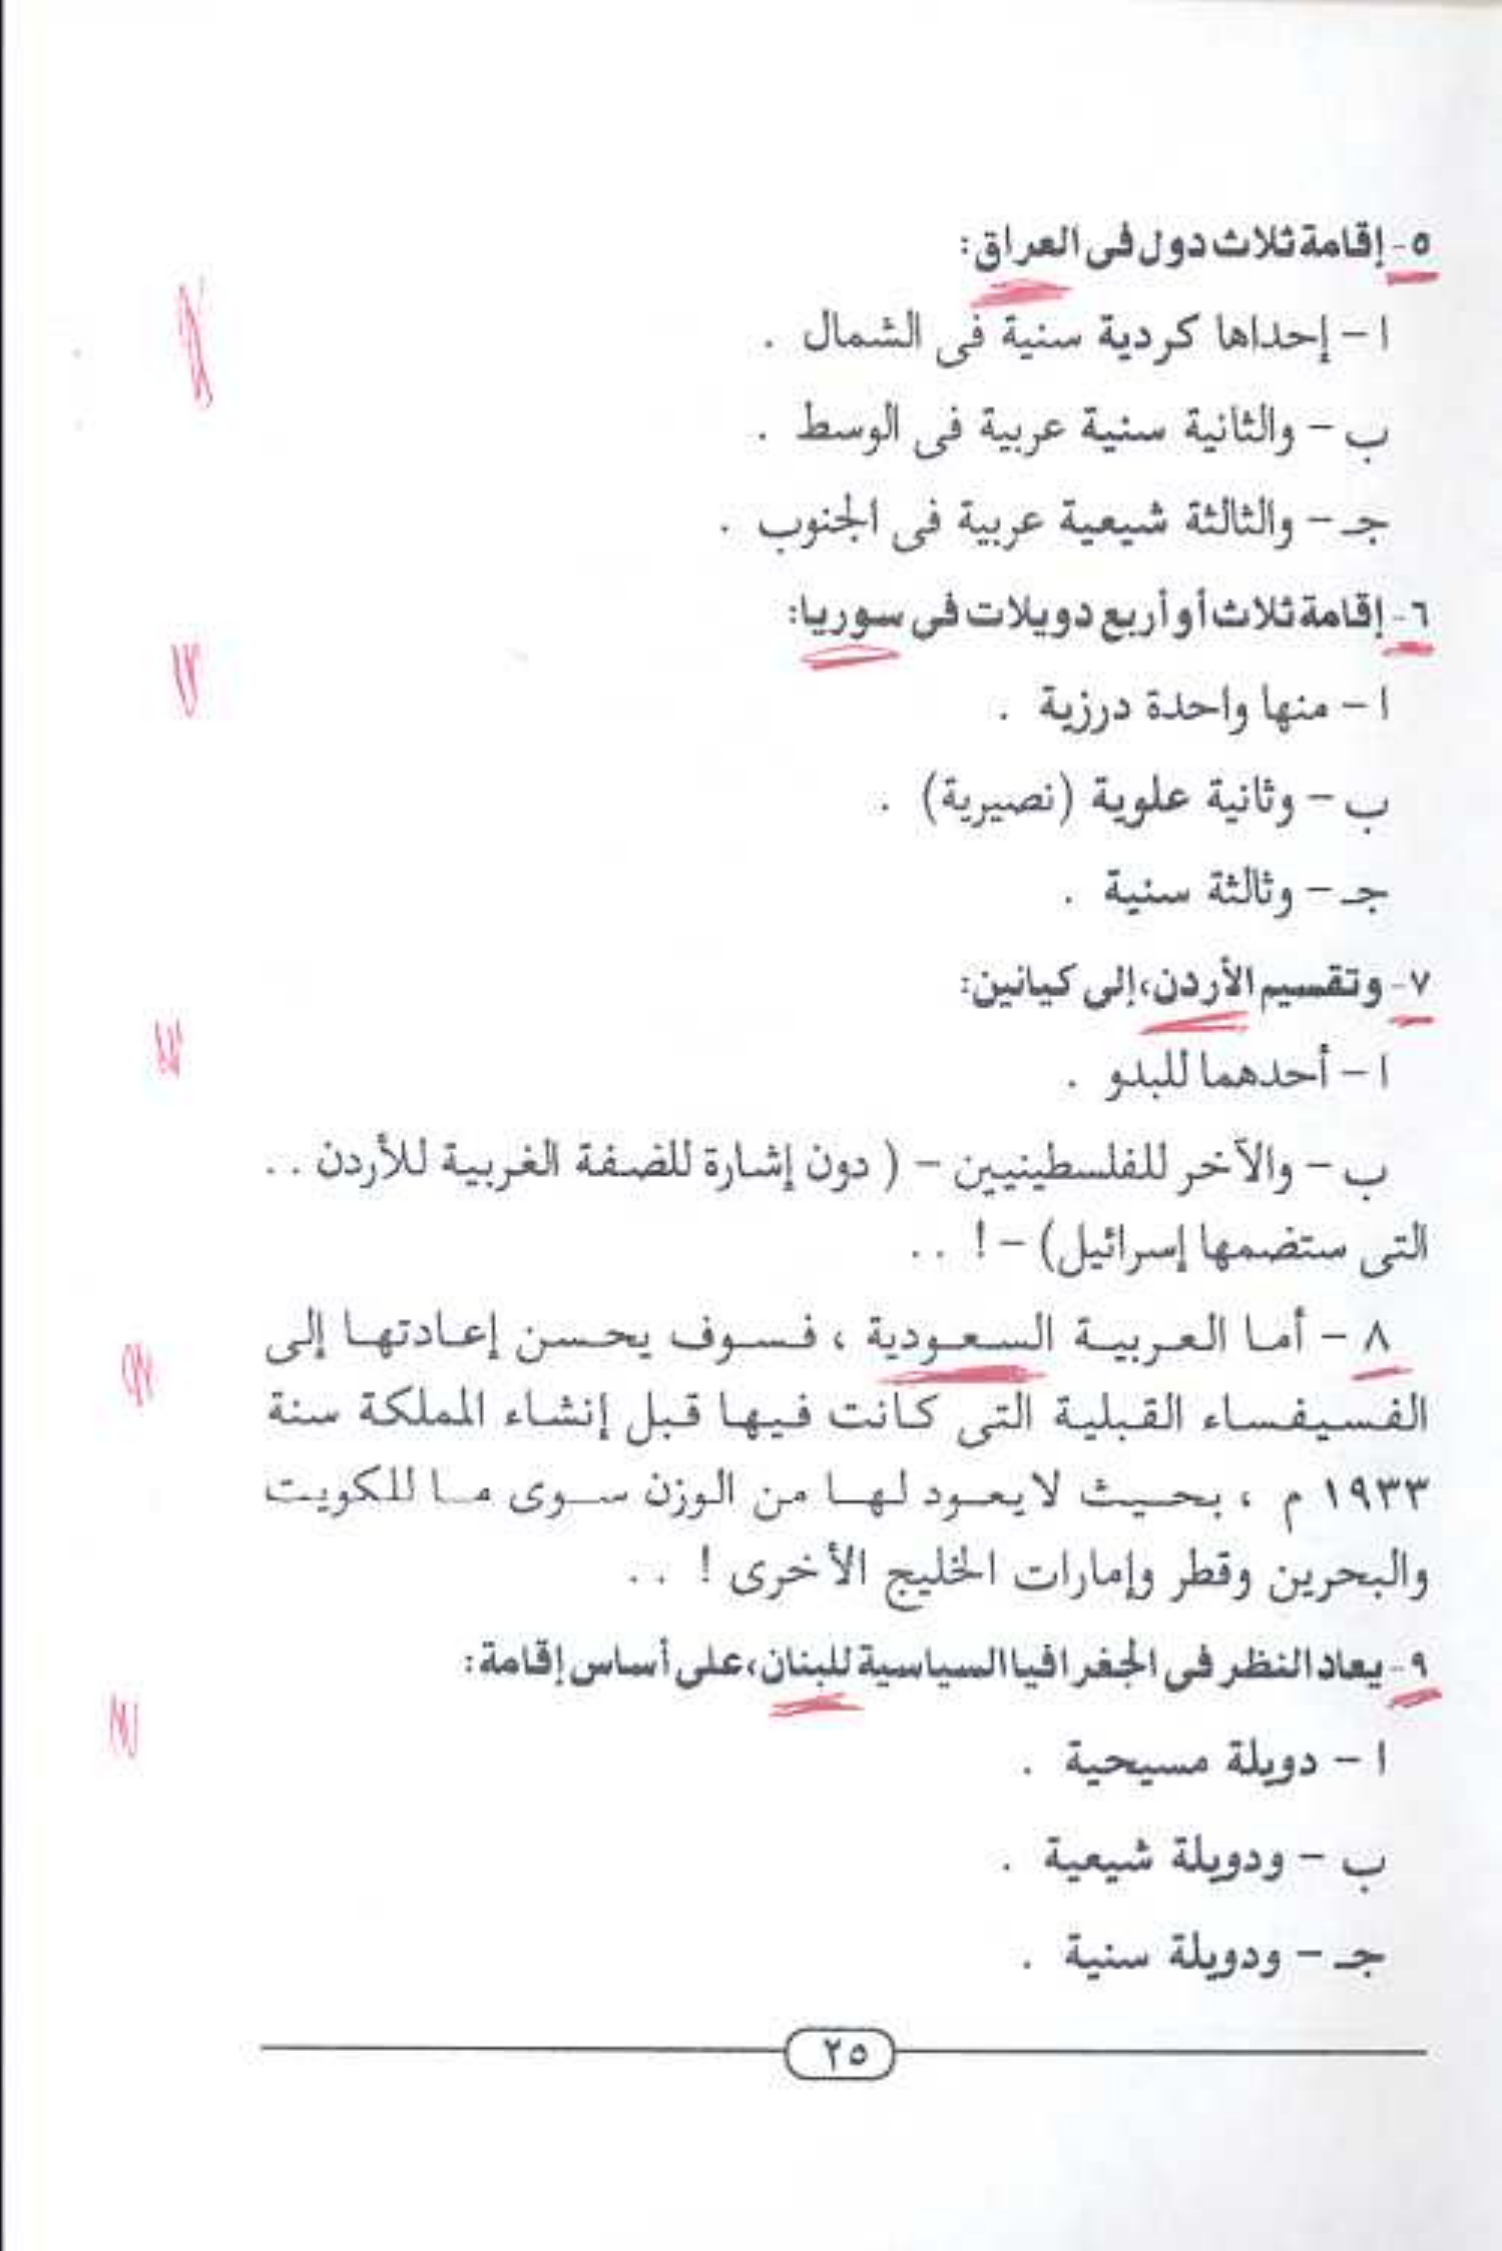 ٥- إقامة ثلاث دول فى العراق:
ا - إحداها كردية سنية فى الشمال .
ب - والثانية سنية عربية فى الوسط .
جـ - والثالثة شيعية عربية فى الجنوب .
٦- إقامة ثلاث أو أربع دويلات فى سوريا:
ا - منها واحدة درزية .
ب - وثانية علوية (نصيرية) .
جـ - وثالثة سنية .
٧- وتقسيم الأردن، إلى كيانين:
ا - أحدهما للبدو .
ب - والآخر للفلسطينيين - ( دون إشارة للضفة الغربية للأردن . .
التى ستضمها إسرائيل) - ! . .
٨ - أما العربية السعودية ، فسوف يحسن إعادتها إلى
الفسيفساء القبلية التى كانت فيها قبل إنشاء المملكة سنة
١٩٣٣ م ، بحيث لا يعود لها من الوزن سوى ما للكويت
والبحرين وقطر وإمارات الخليج الأخرى ! . .
٩- يعاد النظر فى الجغرافيا السياسية للبنان، على أساس إقامة:
ا - دويلة مسيحية .
ب - ودويلة شيعية .
جـ - ودويلة سنية .
٢٥